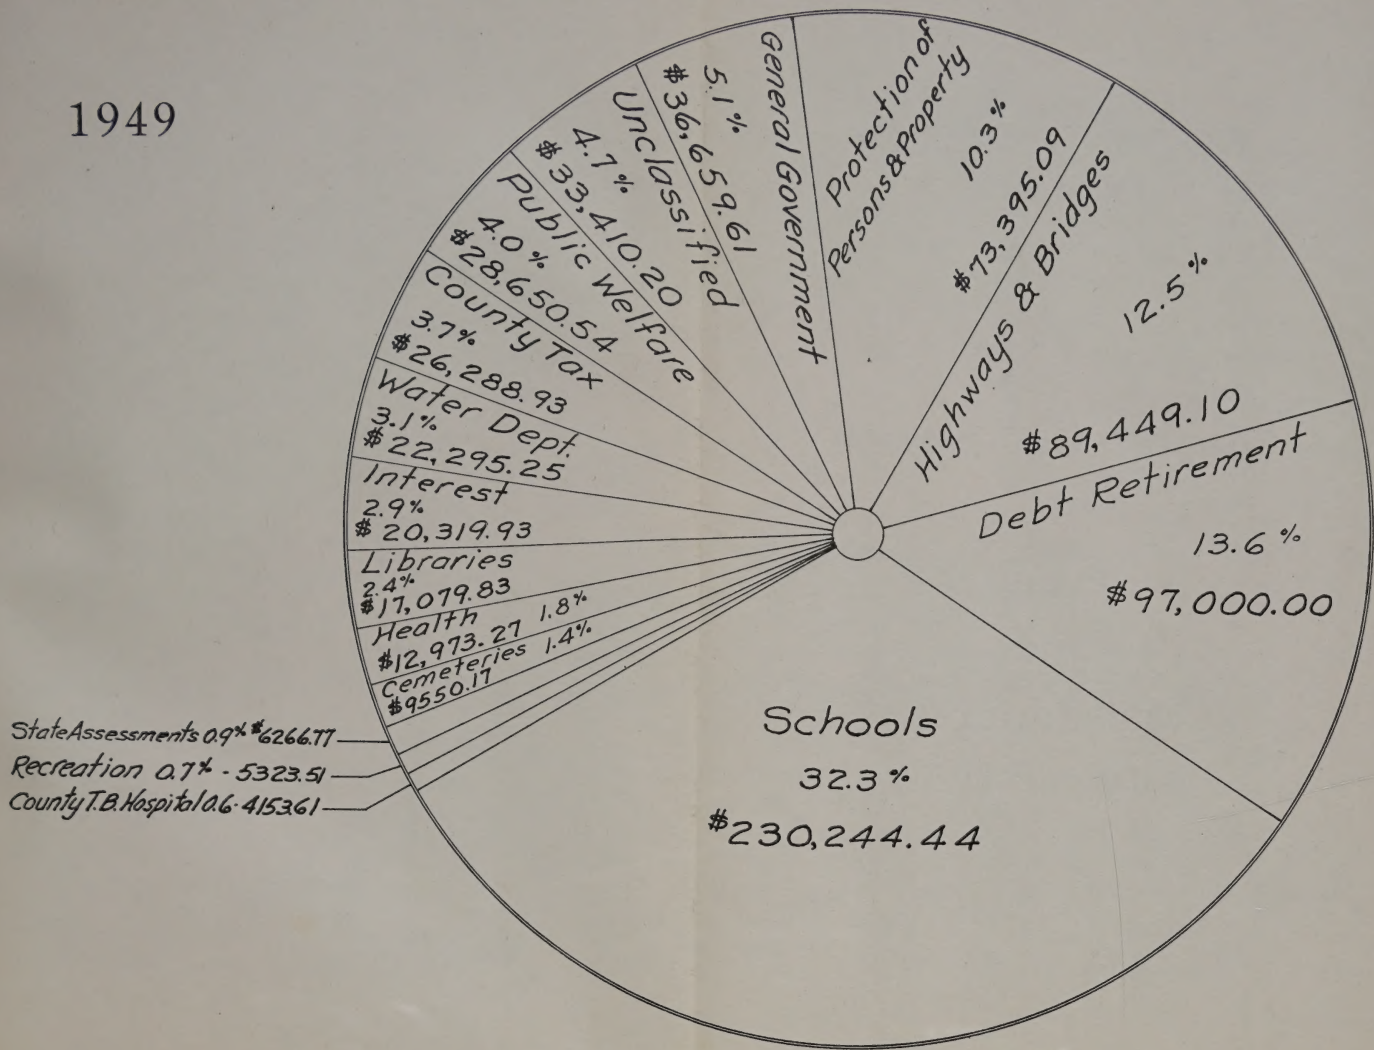 1949
General Government
5.1%
$36,659.61
Protection of
Persons & Property
10.3%
$73,395.09
Highways & Bridges
12.5%
$89,449.10
Debt Retirement
13.6%
$97,000.00
Schools
32.3%
$230,244.44
Unclassified
4.7%
$33,410.20
Public Welfare
4.0%
$28,650.54
County Tax
3.7%
$26,288.93
Water Dept.
3.1%
$22,295.25
Interest
2.9%
$20,319.93
Libraries
2.4%
$17,079.83
Health
$12,973.27 1.8%
Cemeteries 1.4%
$9550.17
State Assessments 0.9% $6266.77
Recreation 0.7% - 5323.51
County T.B. Hospital 0.6 - 4153.61